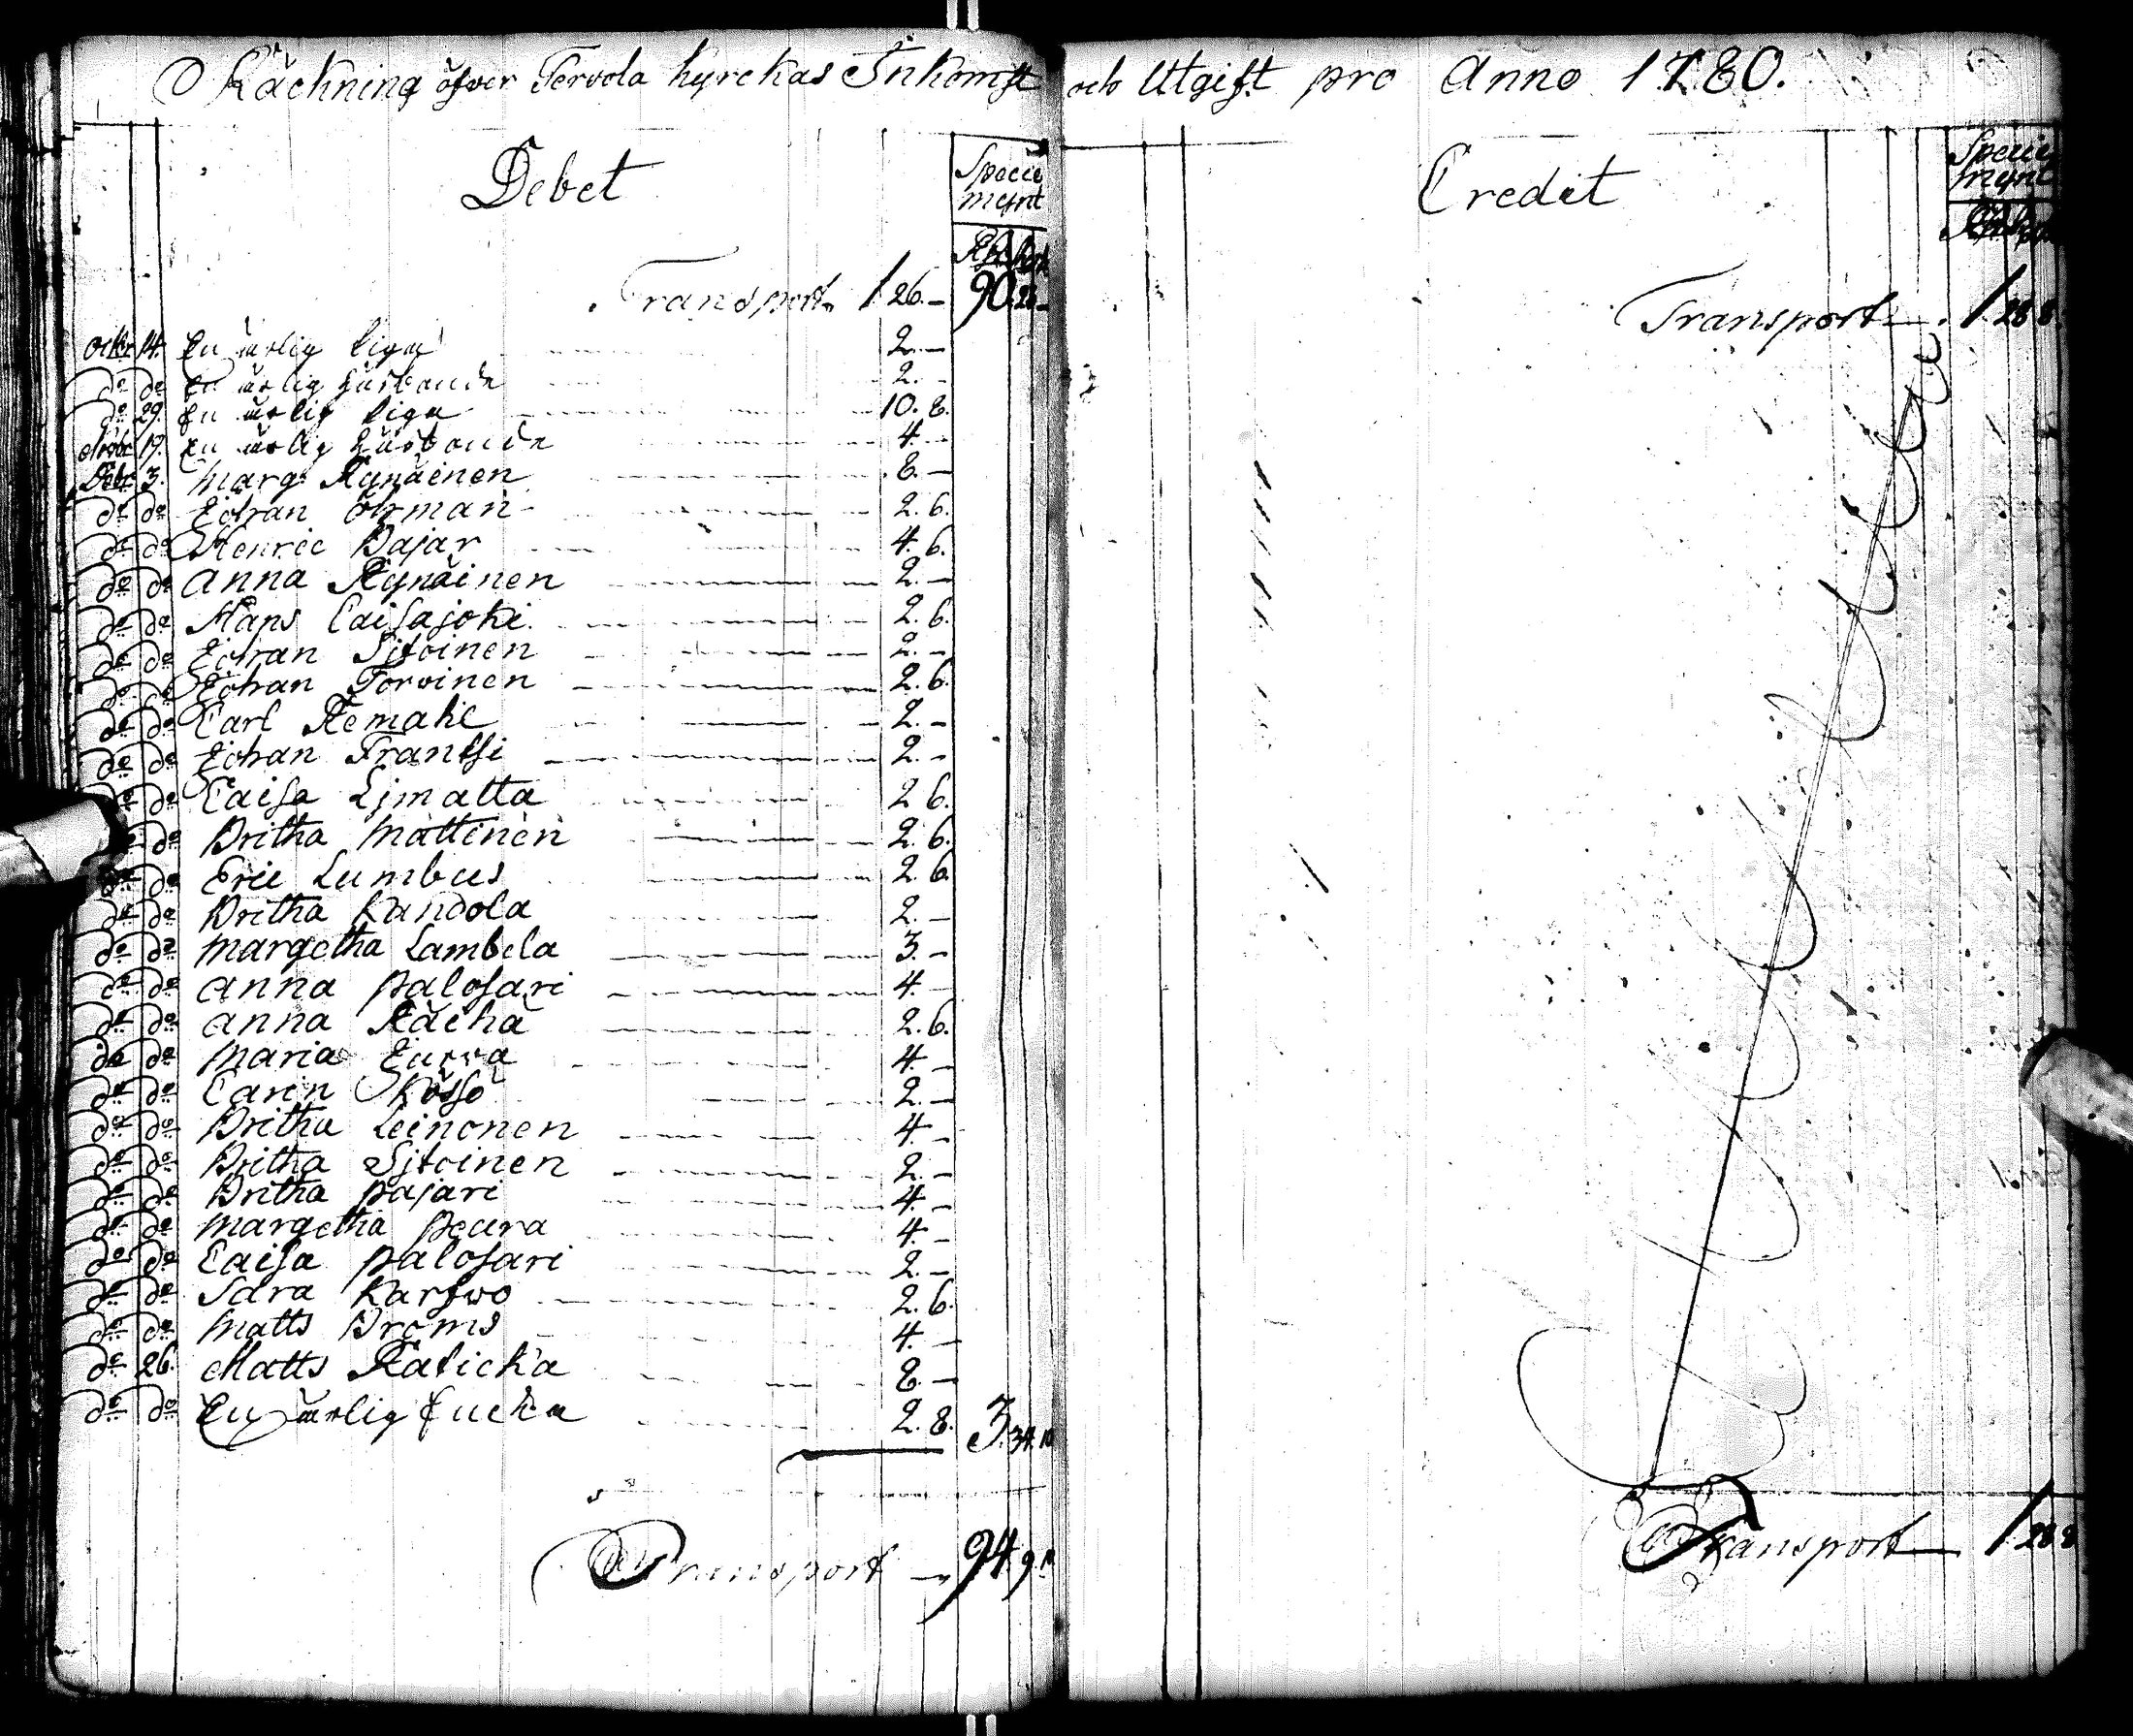 Räckning öfver Tervola kyrckas Inkomst och Utgift pro Anno 1780.
Debet
Specie
mynt
Transport 1 26.— 90. 23 —
Octbr 14. En ärlig Piga 2. —
do do En ärlig husbonde 2. —
do 29. En ärlig Piga 10. 8.
Novbr 19. En ärlig husbonde 4. —
Decbr 3. Marg: Kynäinen 8. —
do do Johan Öhrman 2. 6.
do do Henric Pajar 4. 6.
do do Anna Kynäinen 2. —
do do Hans Caisajoki 2. 6.
do do Johan Sitoinen 2. —
do do Johan Torvinen 2. 6.
do do Carl Kemahl 2. —
do do Johan Frantsi 2. —
do do Caisa Limatta 2 6.
do do Britha Mattinen 2. 6.
do do Eric Lumbus 2. 6.
do do Britha Kandola 2. —
do do Margetha Lambela 3. —
do do Anna Palosari 4. —
do do Anna Kächä 2. 6.
do do Maria Jurva 4. —
do do Carin Kössö 2. —
do do Britha Leinonen 4. —
do do Britha Sitoinen 2. —
do do Britha Pajari 4. —
do do Margetha Peura 4. —
do do Caisa Palosari 2. —
do do Sara Karfwo 2. 6.
do do Matts Broms 4. —
do 26. Matts Raticka 8. —
do do En ärlig Encka 2. 8. 3. 34. 10
Transport — 94 9. 10
Credit
Specie
mynt
Transport — 1 28 8.
Transport — 1 28 8